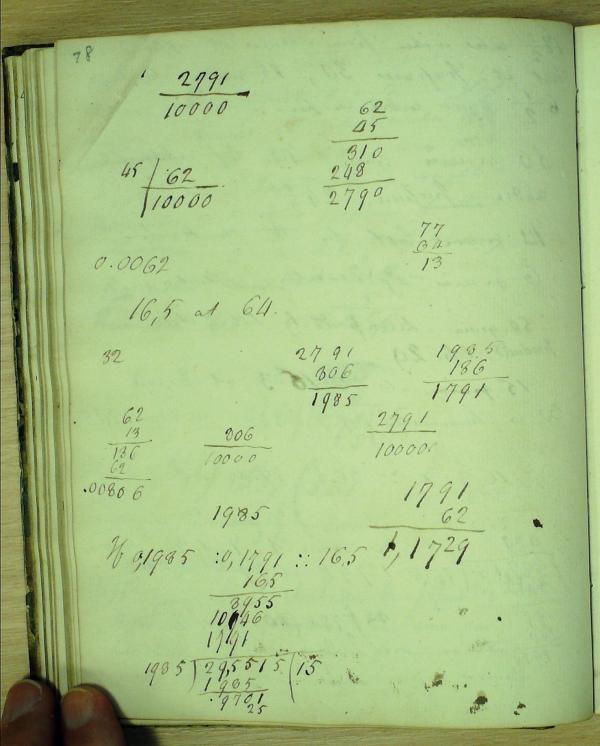 78
2791
10000
62
45
310
248
2790
45 | 62
10000
77
64
13
0.0062
16,5 at 64.
32
2791
806
1985
1985
186
1791
62
13
186
62
.00806
806
10000
2791
10000
1985
1791
62
1,1729
If 0,1985 : 0,1791 :: 16,5
165
8955
10746
1791
1985 ) 295515 ( 15
1985
9701
25